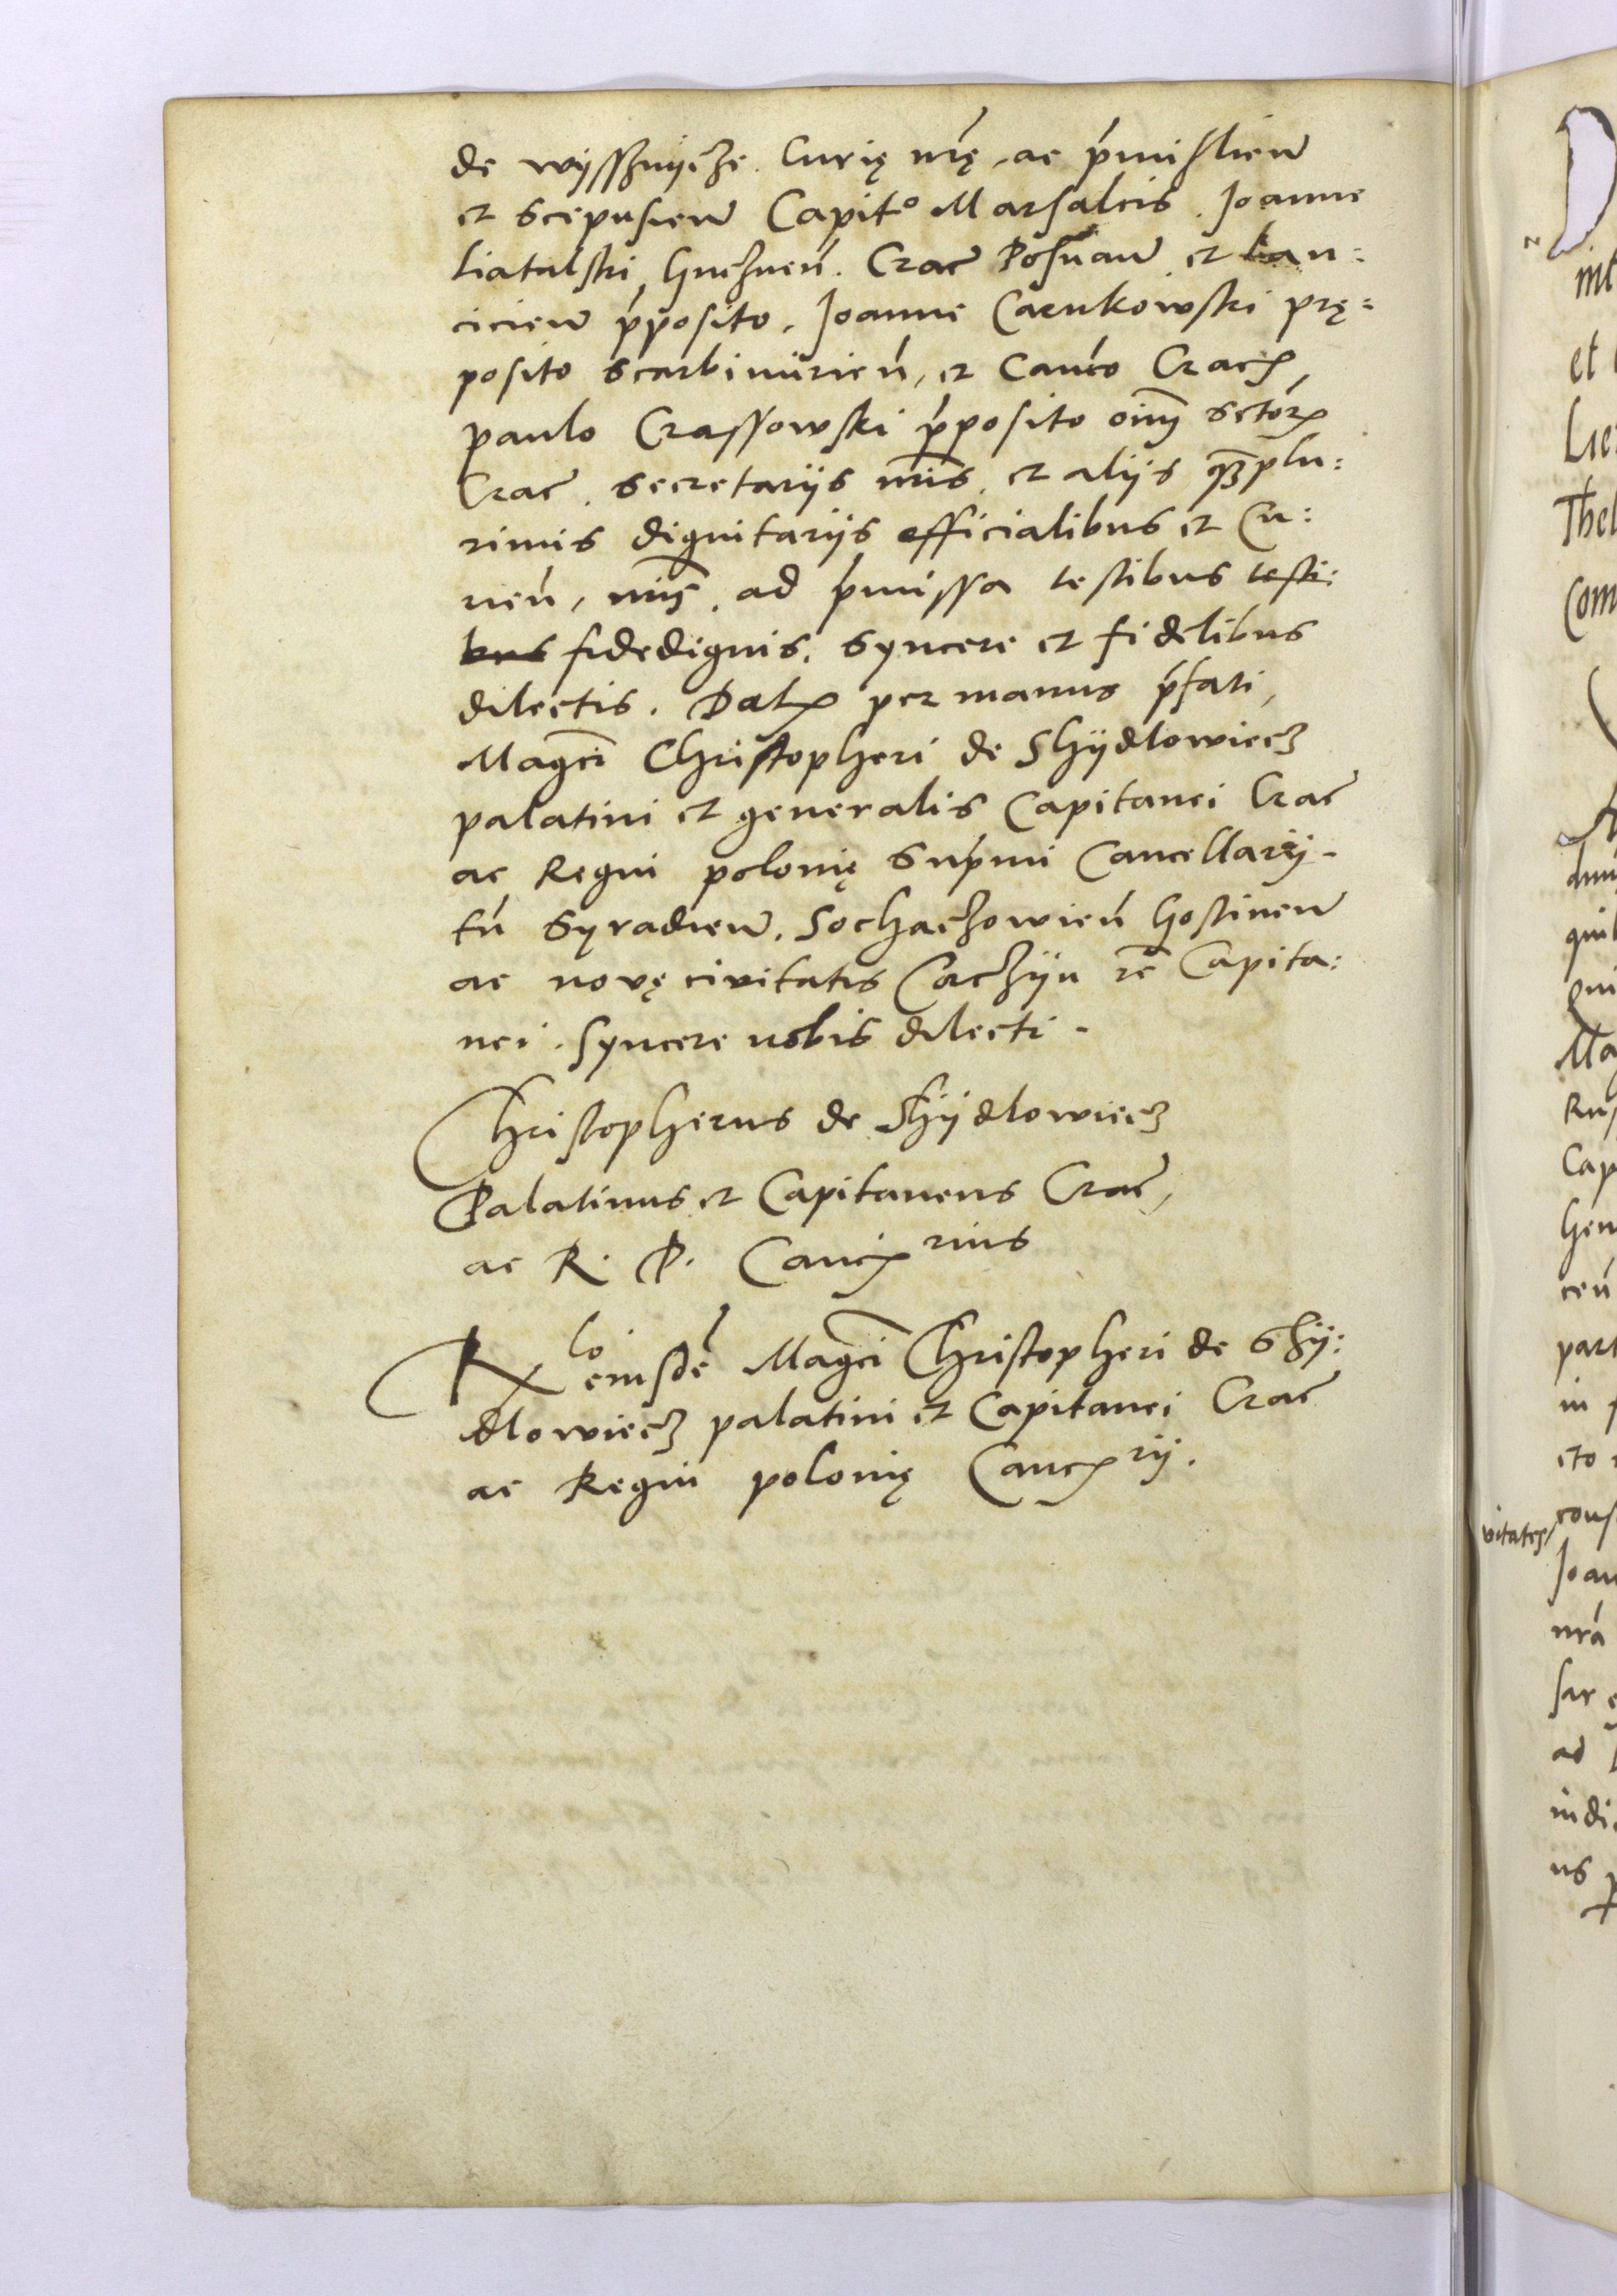 de wyſſznycze. Curię nr̄ę, ac p̄miſlien̄
et Scepusien̄ Capit⁰ Marsalcis. Joanne
Liatalski, Gneznen̄. Crac̄ Posnan̄ et Lan:
cicien̄ p̄posito, Joanne Carnkowski prę:
posito Scarbimirien̄, et Canͦco Cracꝭ,
paulo Crassowski p̄posito om̄ Sctōꝝ
Crac̄. Secretarijs nr̄is, et alijs qꝫplu:
rimis dignitarijs officialibus et Cu:
rien̄, nr̄is, ad p̄missa testibus testi:
bus fidedignis. Syncere et fidelibus
dilectis. Datꝭ per manus p̄fati,
Magc̄i Christopheri de Shÿdlowiecz
palatini et generalis Capitanei Crac̄
ac Regni polonię Sup̄mi Cancellarij-
tn̄ Syradien̄. Sochaczowien̄ Gostinen̄
ac novę civitatis Corczÿn rc̄ Capita:
nei. Syncere nobis dilecti-
Christopherus de Shÿdlowiecz
Palatinus et Capitaneus Crac̄,
ac R. P. Cancꝭrius
Rꝭlo eiusdē Magc̄i Christopheri de Shÿ:
dlowiecz palatini et Capitanei Crac̄
ac Regni polonię Cancꝭrij.
et
Lie
Thel
Com
Ma
Rus
Cap
cen̄
part
in
cto
vitates
cons
Joan
nrā
ad
indi
us